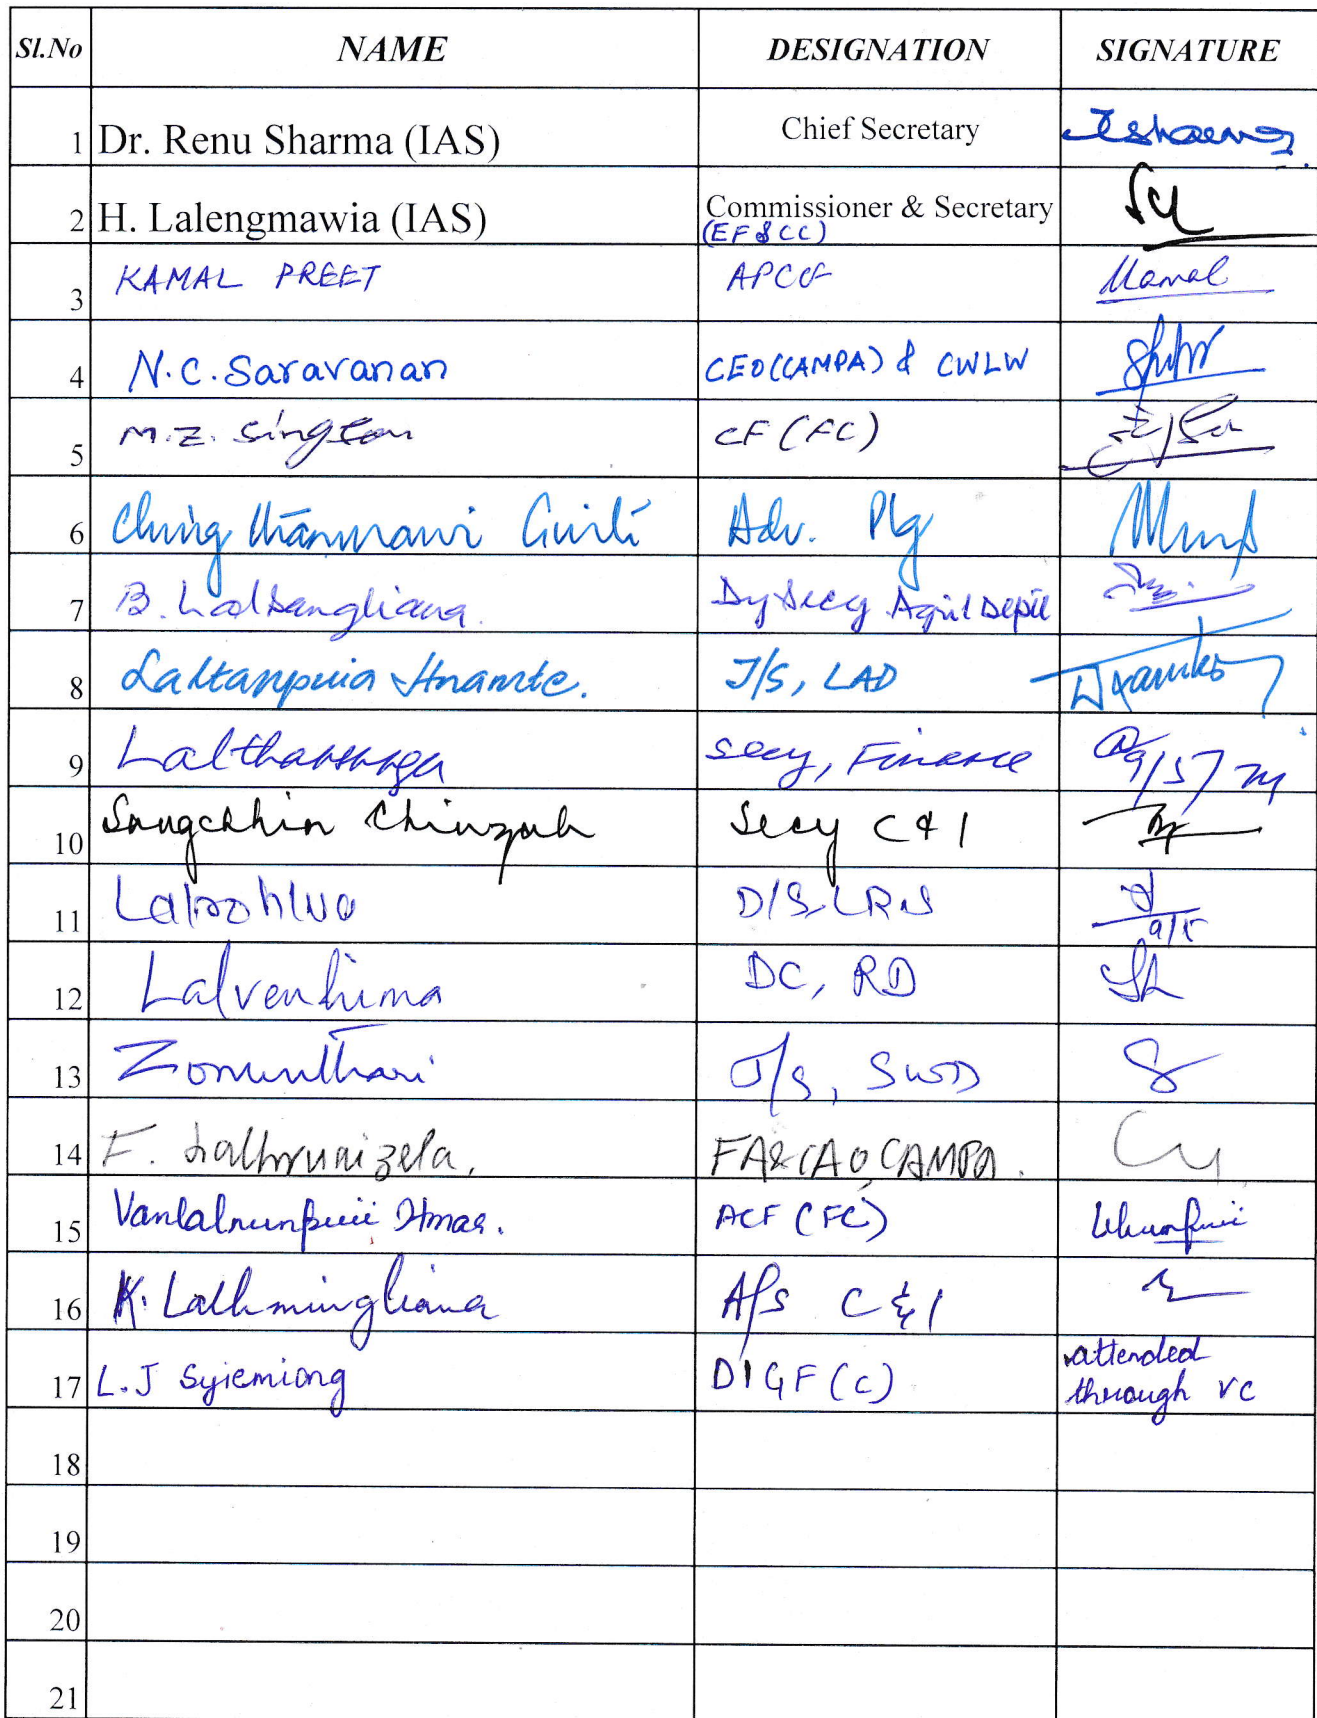 Sl.No NAME DESIGNATION SIGNATURE
1 Dr. Renu Sharma (IAS) Chief Secretary
2 H. Lalengmawia (IAS) Commissioner & Secretary
(EF & CC)
3 KAMAL PREET APCCF Kamal
4 N.C. Saravanan CEO (CAMPA) & CWLW
5 M.Z. Singson CF (FC)
6 Ching Adv. Plg
7 B. Lalsangliana Dy Secy Agril Deptt
8 Laltanpuia Hnamte. J/S, LAD
9 Secy, Finance
10 Sangchhin Chinzah Secy C & I
11 Lalrohlua D/S, LR&S 9/5
12 Lalvenhima DC, RD
13 Zonunthari J/S, SWD
14 F. FA & CAO, CAMPA.
15 Vanlalnunpuii Hmar. ACF (FC)
16 K. Lalhmingliana A/S C & I
17 L.J Syiemiong DIGF (C) attended
through VC
18
19
20
21